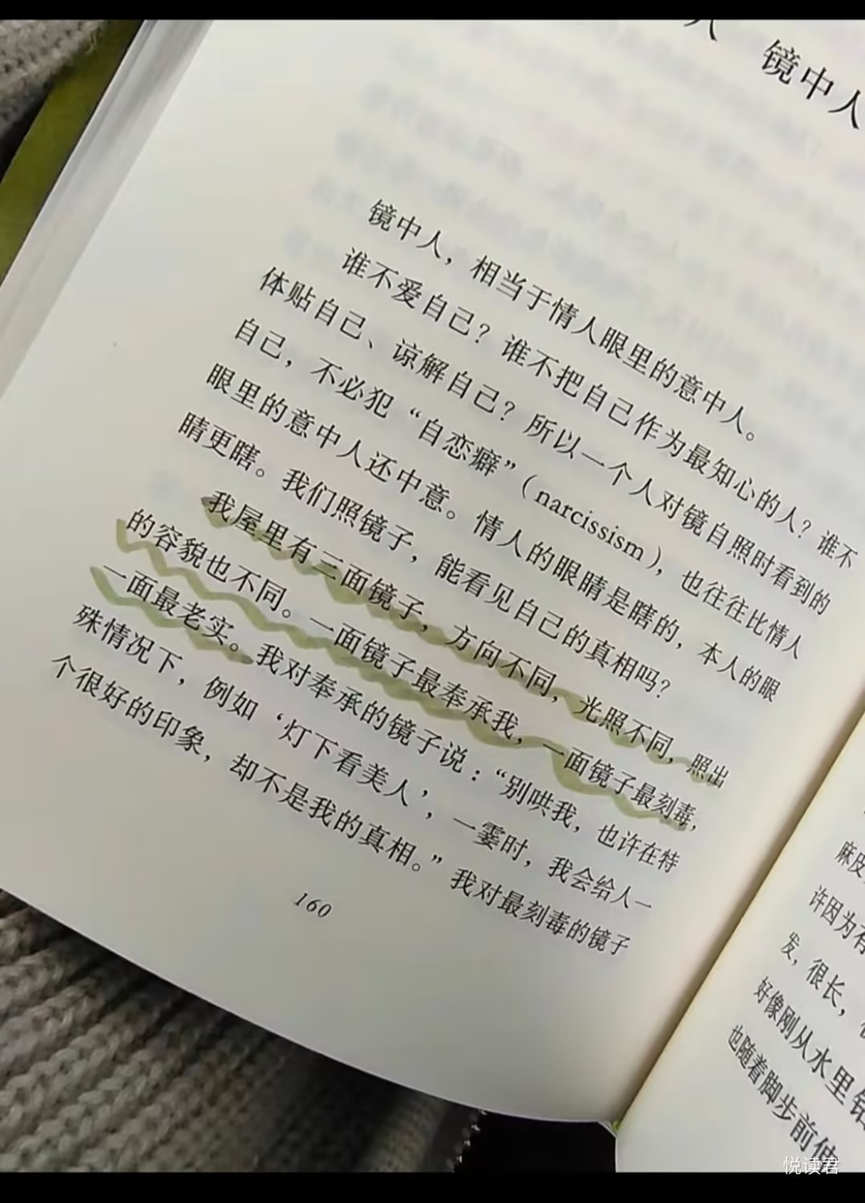 镜中人
镜中人，相当于情人眼里的意中人。
谁不爱自己？谁不把自己作为最知心的人？谁不
体贴自己、谅解自己？所以一个人对镜自照时看到的
自己，不必犯“自恋癖”（narcissism），也往往比情人
眼里的意中人还中意。情人的眼睛是瞎的，本人的眼
睛更瞎。我们照镜子，能看见自己的真相吗？
我屋里有三面镜子，方向不同，光照不同，照出
的容貌也不同。一面镜子最奉承我，一面镜子最刻毒，
一面最老实。我对奉承的镜子说：“别哄我，也许在特
殊情况下，例如‘灯下看美人’，一霎时，我会给人一
个很好的印象，却不是我的真相。”我对最刻毒的镜子
160
麻皮
许因为有
发，很长，
好像刚从水里钻
也随着脚步前伸
悦读君